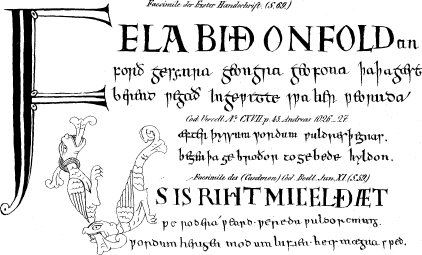 Facsimile der Exeter Handschrift. (S. 69.)
FELA BIÐ ONFOLDan
forð gesynra geongra geofona þa þa gæst
berend wegað ingewitte swa her weoruda
Cod. Vercell. No. CXVII p. 43. Andreas 1026–27.
æfter þyssum wordum wuldres þegnas.
begen þa gebroðor togebede hyldon.
Facsimile des (Caedmon) Cod. Bodl. Jun. XI (S. 59)
US IS RIHT MICEL ÐÆT
we rodera weard. wereda wuldorcining.
wordum herigen modum lufien. he is mægna sped.